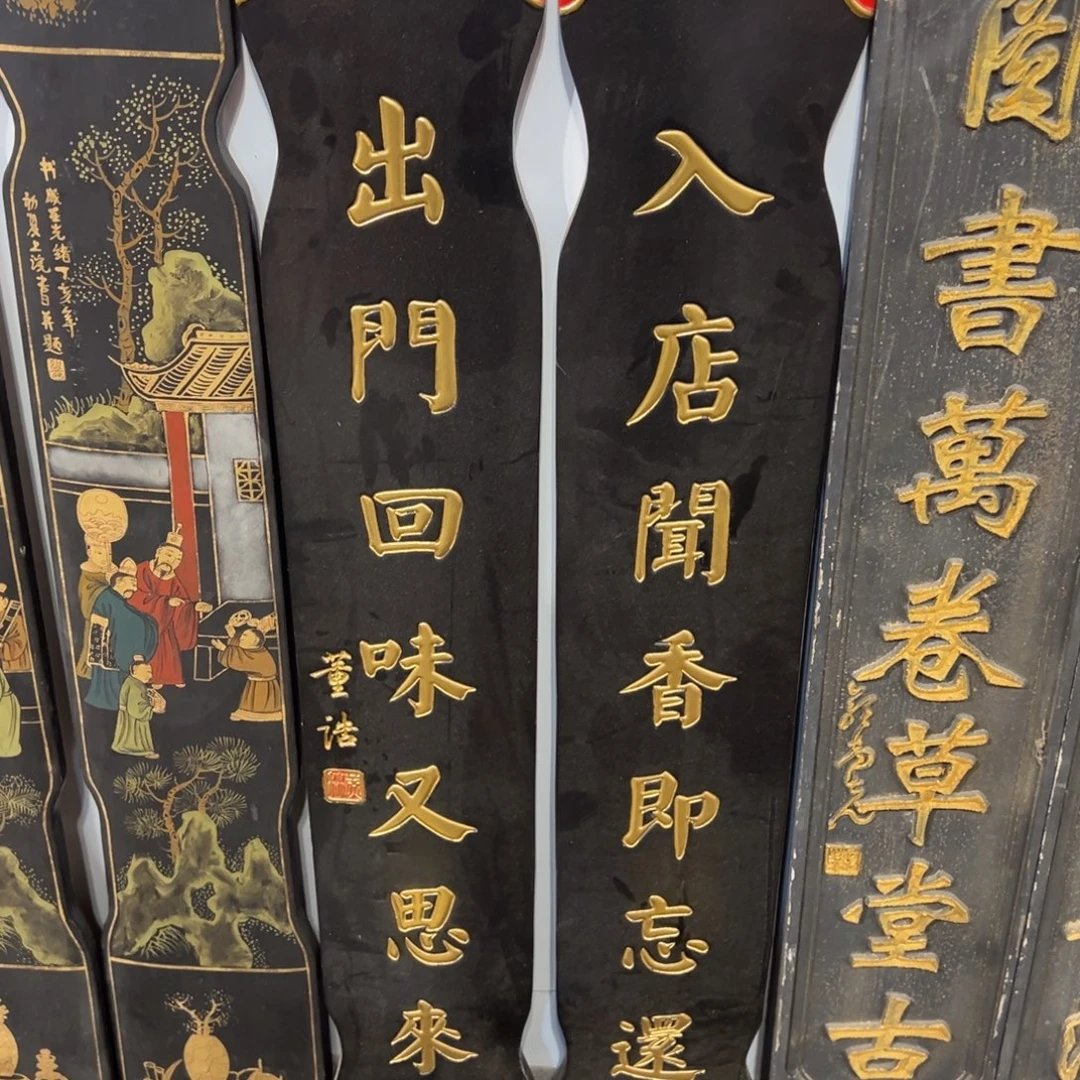 圖書萬卷草堂古
入店聞香即忘還
出門回味又思來
董誥
光緒丁亥年
初夏上浣書并題